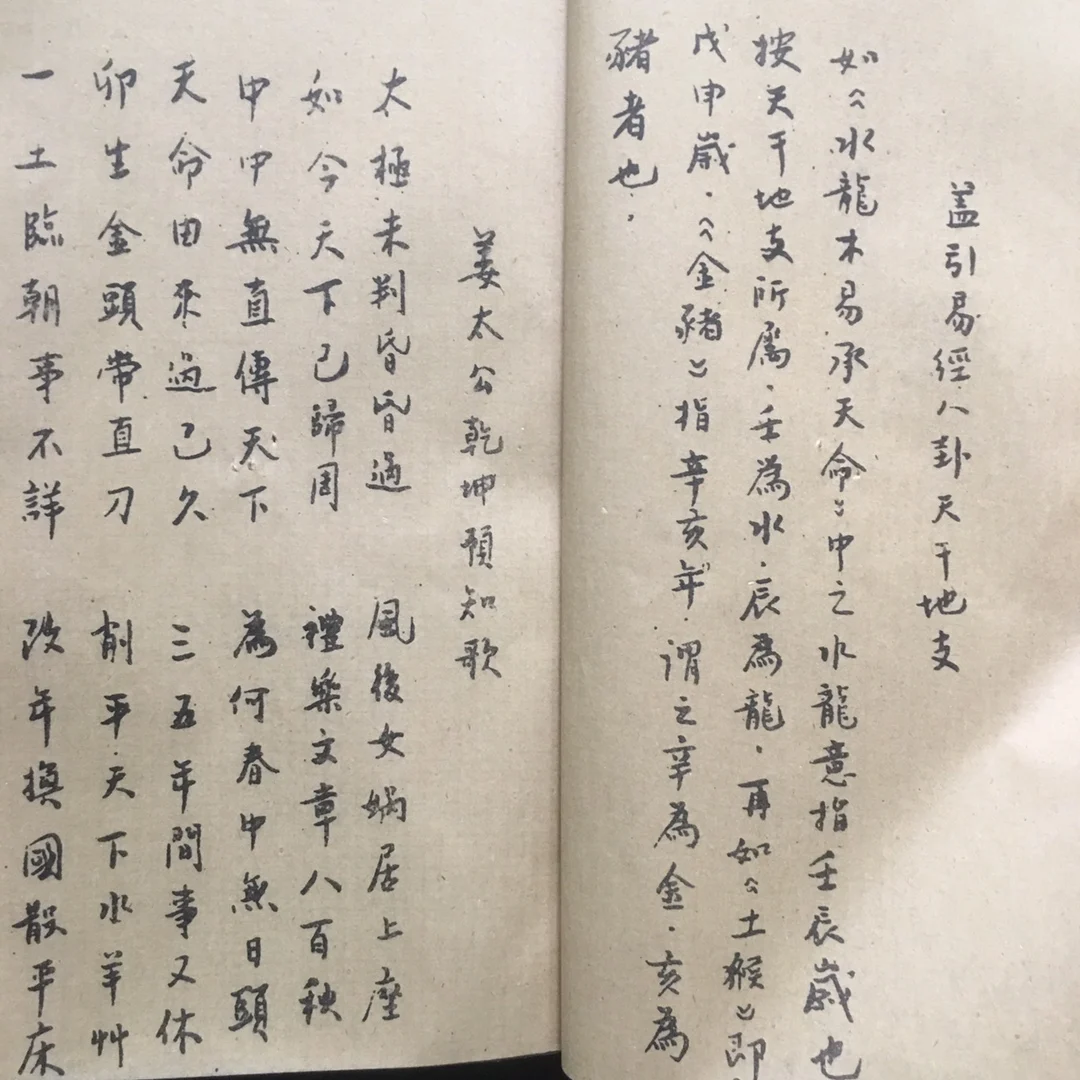 蓋引易經八卦天干地支
如《水龍木易承天命》中之水龍意指壬辰歲也
按天干地支所屬．壬為水．辰為龍．再如《土猴》即
戊申歲．《金豬》指辛亥年．謂之辛為金．亥為
豬者也．
姜太公乾坤預知歌
太極未判昏昏過 風後女媧居上座
如今天下已歸周 禮樂文章八百秧
中中無直傳天下 為何春中無日頭
天命由來過已久 三五年間事又休
卯生金頭帶直刀 削平天下水羊艸
一土臨朝事不詳 改年換國散平床